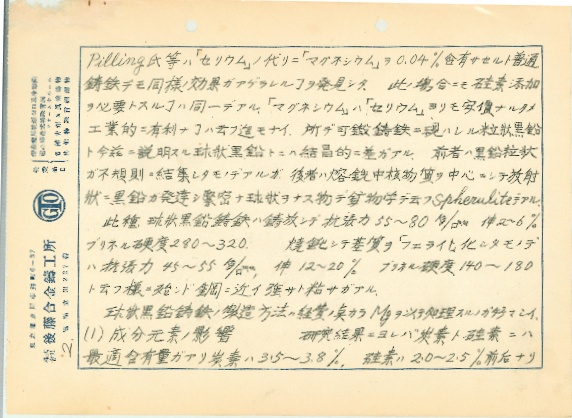 Pilling氏等ハ「セリウム」ノ代リニ「マグネシウム」ヲ0.04%含有サセルト普通
鋳鉄デモ同様ノ効果ガアゲラレルヿヲ発見シタ。 此ノ場合ニモ硅素添加
ヲ必要トスルヿハ同一デアル。「マグネシウム」ハ「セリウム」ヨリモ安價ナルタメ
工業的ニ有利ナヿハ云フ迄モナイ。 所デ可鍛鋳鉄ニ現ハレル粒状黒鉛
ト今茲ニ説明スル球状黒鉛トニハ結晶的ニ差ガアル。 前者ハ黒鉛粒状
ガ不規則ニ結集シタモノデアルガ 後者ハ熔銑中核物質ヲ中心ニシテ放射
状ニ黒鉛ガ発達シ緊密ナ球状ヲナス物デ鉱物学デ云フSpheruliteデアル。
此種球状黒鉛鋳鉄ハ鋳放シデ抗張力55〜80 伸2〜6%
ブリネル硬度280〜320. 焼鈍シテ基質ヲ「フェライト」化シタモノデ
ハ抗張力45〜55 伸12〜20% ブリネル硬度140〜180
ト云フ様ニ殆ンド鋼ニ近イ強サト粘サガアル。
球状黒鉛鋳鉄ノ製造方法ハ経費ノ点カラMg
(1) 成分元素ノ影響 研究結果ニヨレバ炭素ト硅素ニハ
最適含有量ガアリ炭素ハ3.5〜3.8%, 硅素ハ2.0〜2.5%前后ナリ
GTO
後藤合金鑄工所
2.